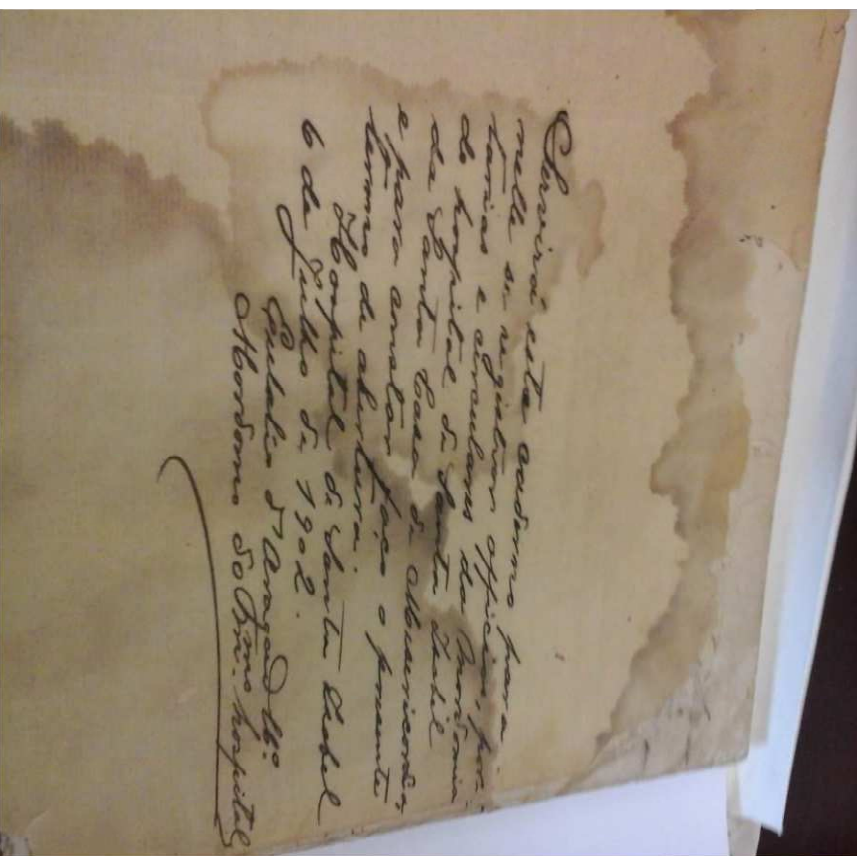 Servirá este caderno para
nelle se registrar officios, por-
tarias e circulares da Mordomia
do hospital de Santa Isabel
da Santa Casa de Misericordia,
e para constar faço o presente
termo de abertura.
Hospital de Santa Isabel
6 de Julho de 1902.
Eutalio d'Aragão
Mordomo do hospital